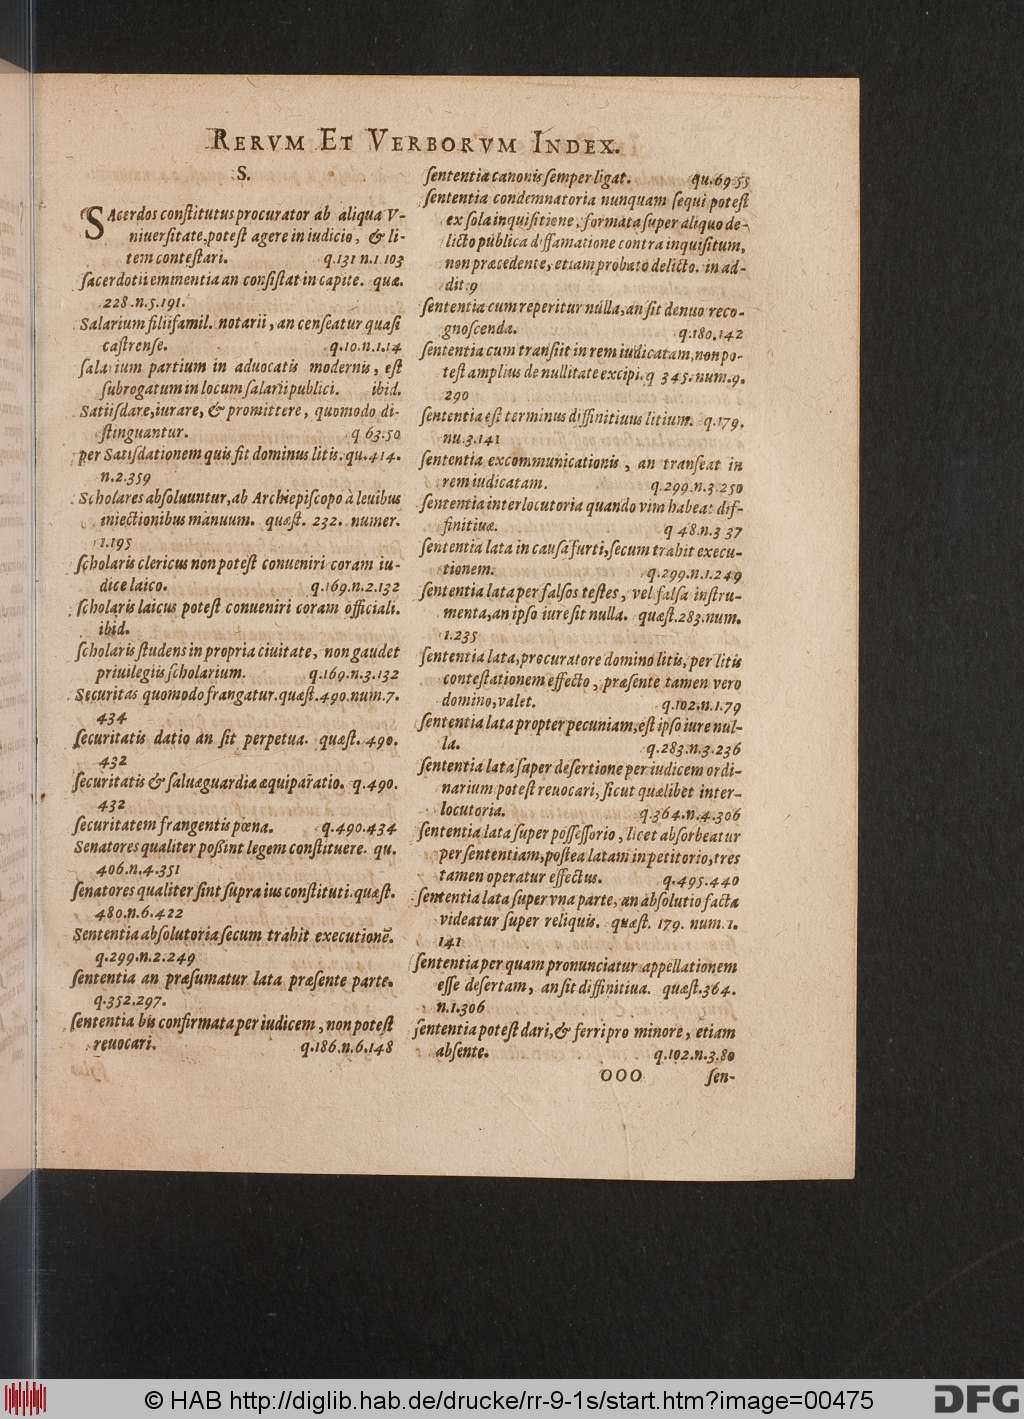 RERVM ET VERBORVM INDEX.
S.
SAcerdos conſtitutus procurator ab aliqua V-
niuerſitate, poteſt agere in iudicio, & li-
tem conteſtari. q.131 n.1 103
ſacerdotii eminentia an conſiſtat in capite. quæ.
228.n.5.191.
Salarium filiifamil. notarii, an cenſeatur quaſi
caſtrenſe. q.10.n.1.14
ſalarium partium in aduocatis modernis, eſt
ſubrogatum in locum ſalarii publici. ibid.
Satiſdare, iurare, & promittere, quomodo di-
ſtinguantur. q 63.50
per Satiſdationem quis fit dominus litis. qu.414.
n.2.359
Scholares abſoluuntur, ab Archiepiſcopo à leuibus
iniectionibus manuum. quæſt. 232. numer.
1.195
ſcholaris clericus non poteſt conueniri coram iu-
dice laico. q.169.n.2.132
ſcholaris laicus poteſt conueniri coram officiali.
ibid.
ſcholaris ſtudens in propria ciuitate, non gaudet
priuilegiis ſcholarium. q.169.n.3.132
Securitas quomodo frangatur. quæſt.490.num.7.
434
ſecuritatis datio an ſit perpetua. quæſt. 490.
432
ſecuritatis & ſaluæguardiæ æquiparatio. q.490.
432
ſecuritatem frangentis pœna. q.490.434
Senatores qualiter poßint legem conſtituere. qu.
406.n.4.351
ſenatores qualiter ſint ſupra ius conſtituti. quæſt.
480.n.6.422
Sententia abſolutoria ſecum trahit executionē.
q.299.n.2.249
ſententia an præſumatur lata præſente parte.
q.352.297.
ſententia bis confirmata per iudicem, non poteſt
reuocari. q.186.n.6.148
ſententia canonis ſemper ligat. qu.69 55
ſententia condemnatoria nunquam ſequi poteſt
ex ſola inquiſitione, formata ſuper aliquo de-
licto publica diffamatione contra inquiſitum,
non præcedente, etiam probato delicto. in ad-
dit.9
ſententia cum reperitur nulla, an ſit denuo reco-
gnoſcenda. q.180.142
ſententia cum tranſiit in rem iudicatam, non po-
teſt amplius de nullitate excipi. q 345.num.9.
290
ſententia eſt terminus diffinitiuus litium. q.179.
nu.3.141
ſententia excommunicationis, an tranſeat in
rem iudicatam. q.299.n.3.250
ſententia interlocutoria quando vim habeat dif-
finitiuæ. q 48.n.3 37
ſententia lata in cauſa furti, ſecum trahit execu-
tionem. q.299.n.1.249
ſententia lata per falſos teſtes, vel falſa inſtru-
menta, an ipſo iure ſit nulla. quæſt.283.num.
1.235
ſententia lata, procuratore domino litis, per litis
conteſtationem effecto, præſente tamen vero
domino, valet. q.102.n.1.79
ſententia lata propter pecuniam, eſt ipſo iure nul-
la. q.283.n.3.236
ſententia lata ſuper deſertione per iudicem ordi-
narium poteſt reuocari, ſicut quælibet inter-
locutoria. q.364.n.4.306
ſententia lata ſuper poſſeſſorio, licet abſorbeatur
per ſententiam, poſtea latam in petitorio, tres
tamen operatur effectus. q.495.440
ſententia lata ſuper vna parte, an abſolutio facta
videatur ſuper reliquis. quæſt. 179. num.1.
141
ſententia per quam pronunciatur appellationem
eſſe deſertam, an ſit diffinitiua. quæſt.364.
n.1.306
ſententia poteſt dari, & ferri pro minore, etiam
abſente. q.102.n.3.80
OOO ſen-
© HAB http://diglib.hab.de/drucke/rr-9-1s/start.htm?image=00475
DFG